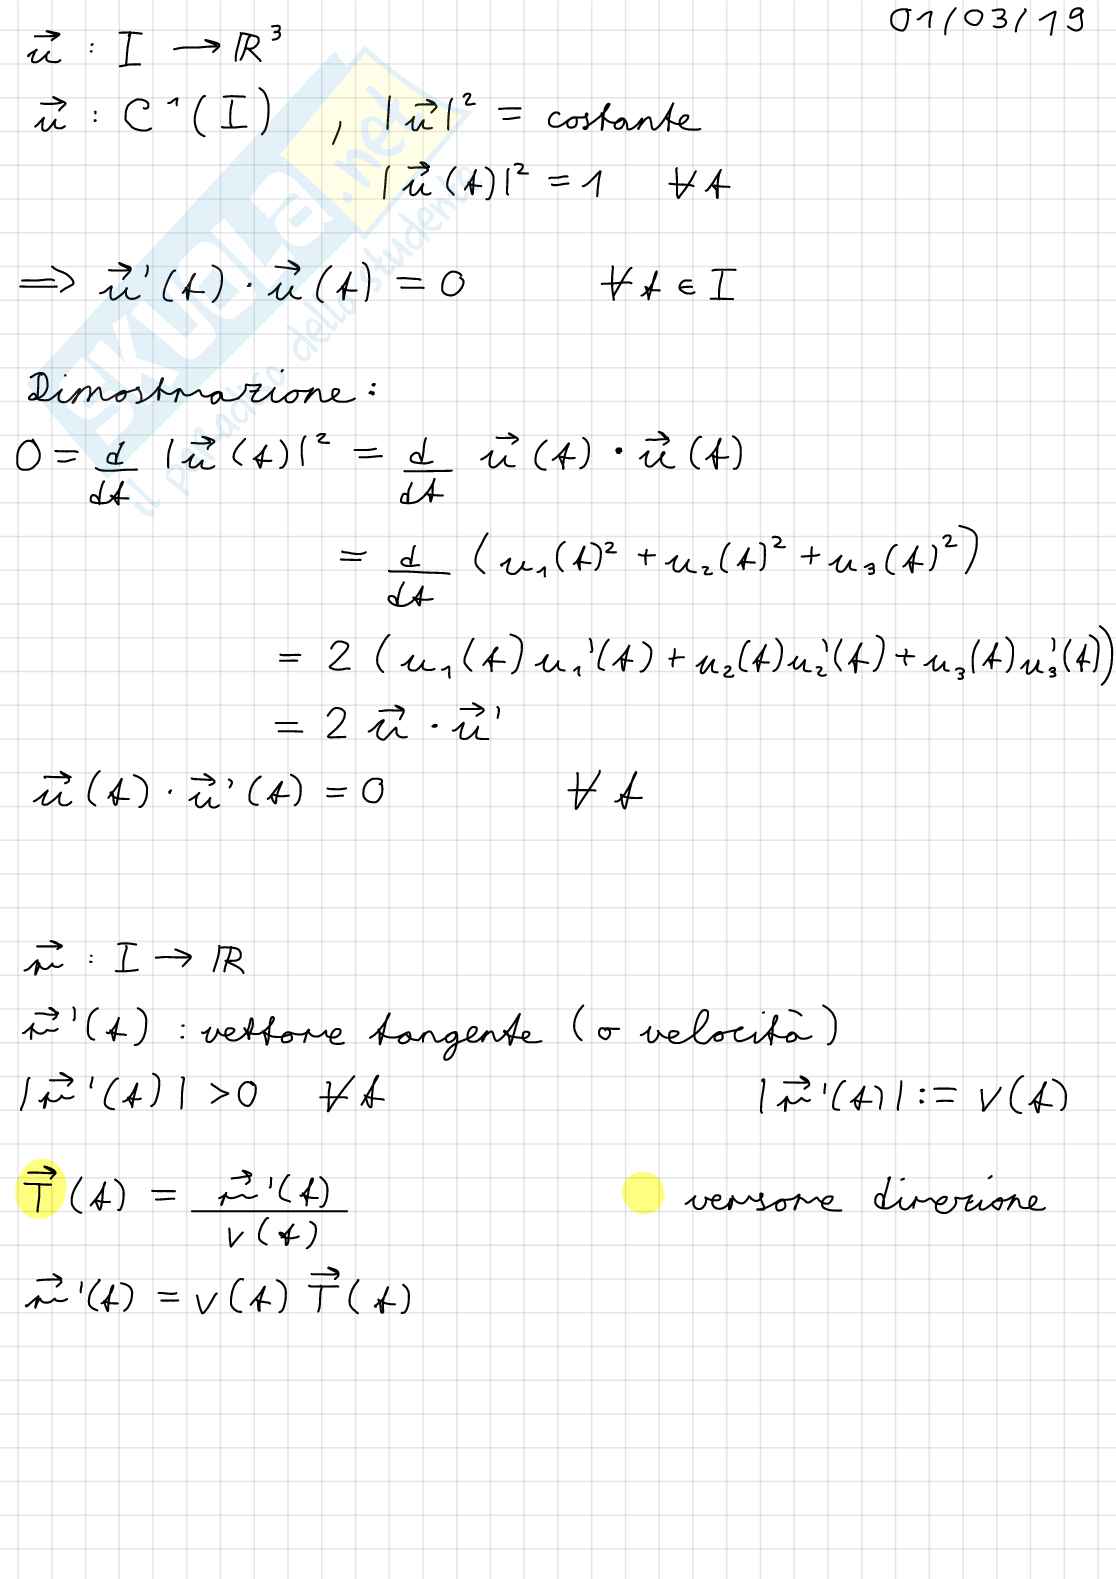 01/03/19
u⃗ : I → ℝ³
u⃗ : C¹(I) , |u⃗|² = costante
|u⃗(t)|² = 1 ∀t
⟹ u⃗'(t) · u⃗(t) = 0 ∀t ∈ I
Dimostrazione:
0 = d/dt |u⃗(t)|² = d/dt u⃗(t) · u⃗(t)
= d/dt (u₁(t)² + u₂(t)² + u₃(t)²)
= 2 (u₁(t)u₁'(t) + u₂(t)u₂'(t) + u₃(t)u₃'(t))
= 2 u⃗ · u⃗'
u⃗(t) · u⃗'(t) = 0 ∀t
r⃗ : I → ℝ
r⃗'(t) : vettore tangente (o velocità)
|r⃗'(t)| > 0 ∀t |r⃗'(t)| := v(t)
T⃗(t) = r⃗'(t)/v(t) versore direzione
r⃗'(t) = v(t) T⃗(t)
SKUOLA.net
il paradiso dello studente